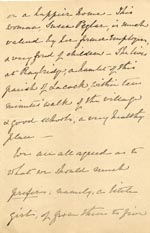 or a happier home – This
woman, Susan Peglar, is much
valued by her former employers,
a very fond of children – She lives
at Raybridge, a hamlet of this
parish of Lacock, within ten
minutes walk of the village
& good schools, a very healthy
place –
We are all agreed as to
what we should much
prefer; namely, a little
girl, of from three to five